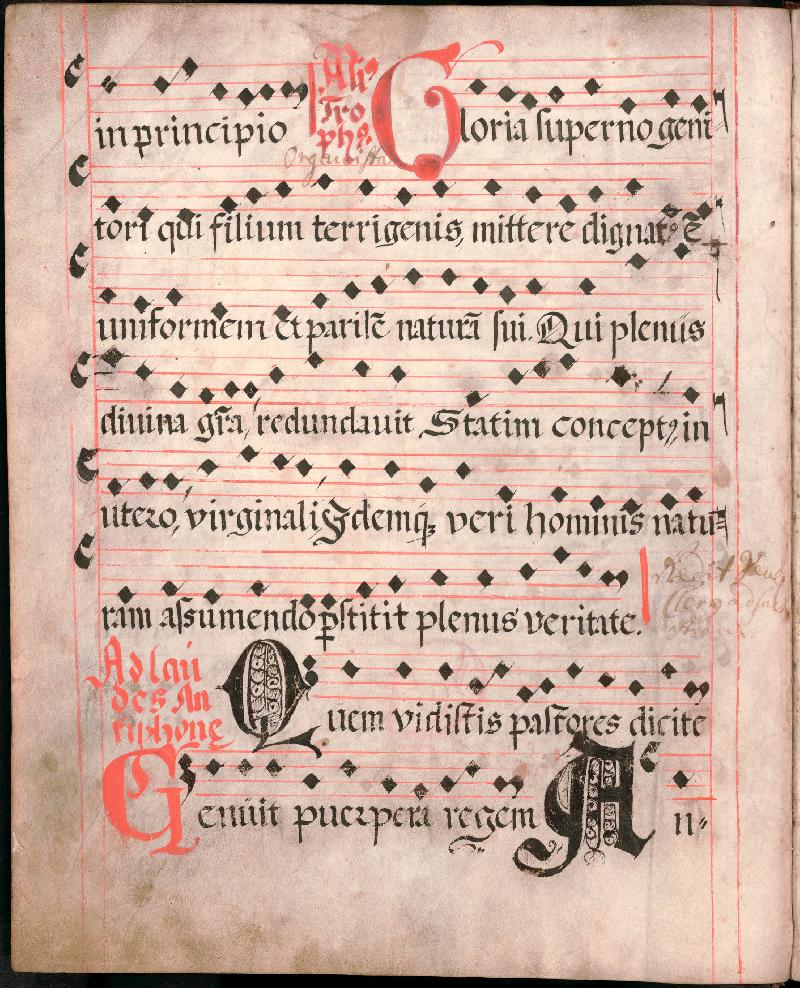 in principio Ali9 Tro ph9. Gloria superno geni
Organista
tori qui filium terrigenis, mittere dignat9 ē
uniformem et parilē naturā sui. Qui plenus
diuina gr̄a, redundauit Statim concept9, in
utero, virginali Idemq; veri hominis natu=
ram assumendo p̄stitit plenus veritate.
Ad lau
des An
tiphone
Quem vidistis pastores dicite
Genuit puerpera regem An=